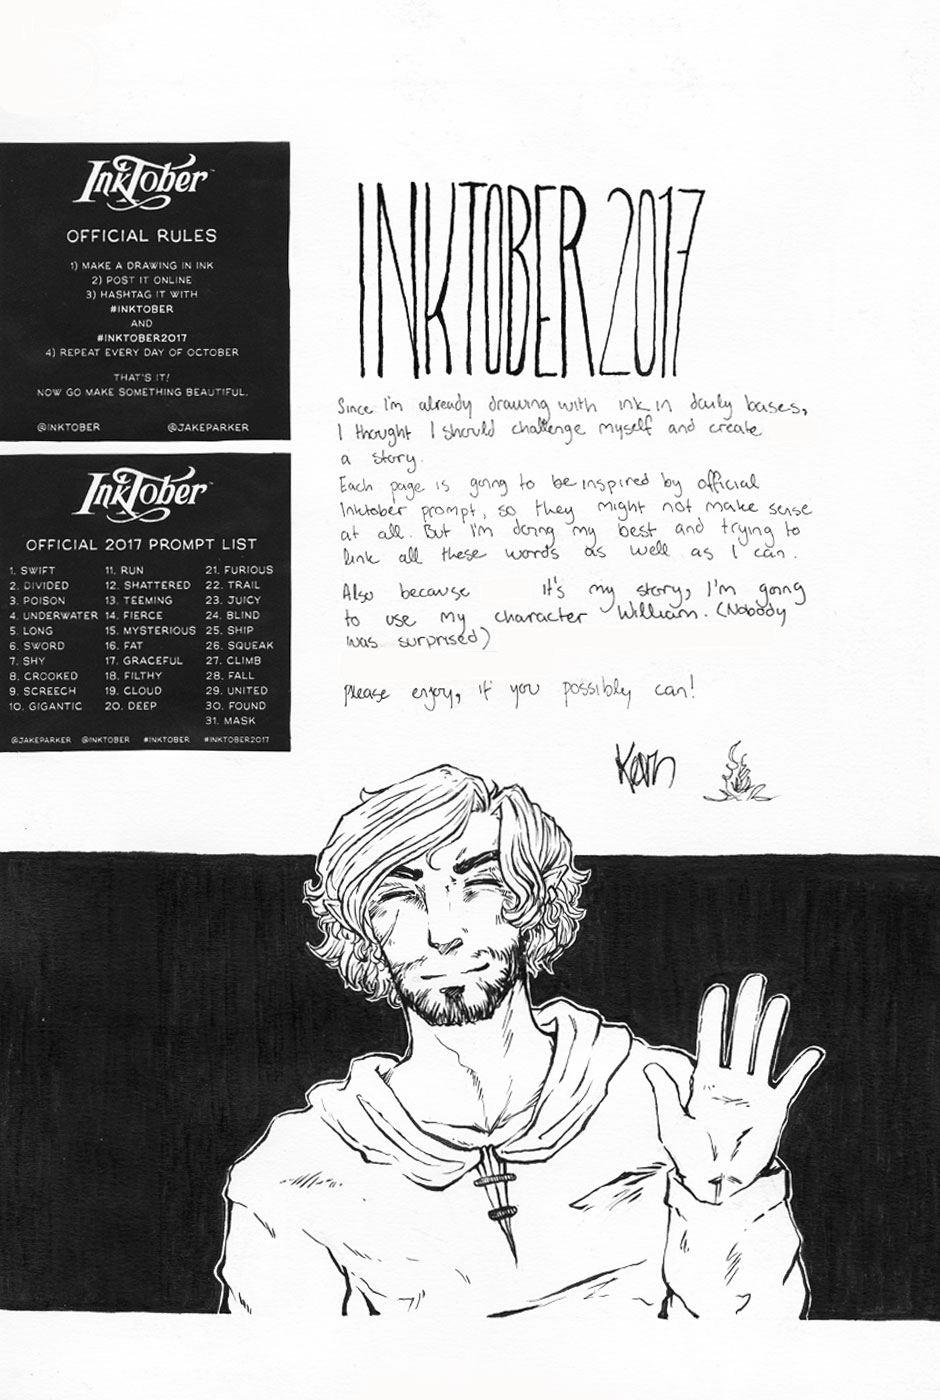 InkTober™
OFFICIAL RULES
1) MAKE A DRAWING IN INK
2) POST IT ONLINE
3) HASHTAG IT WITH
#INKTOBER
AND
#INKTOBER2017
4) REPEAT EVERY DAY OF OCTOBER
THAT'S IT!
NOW GO MAKE SOMETHING BEAUTIFUL.
@INKTOBER @JAKEPARKER
InkTober™
OFFICIAL 2017 PROMPT LIST
1. SWIFT
2. DIVIDED
3. POISON
4. UNDERWATER
5. LONG
6. SWORD
7. SHY
8. CROOKED
9. SCREECH
10. GIGANTIC
11. RUN
12. SHATTERED
13. TEEMING
14. FIERCE
15. MYSTERIOUS
16. FAT
17. GRACEFUL
18. FILTHY
19. CLOUD
20. DEEP
21. FURIOUS
22. TRAIL
23. JUICY
24. BLIND
25. SHIP
26. SQUEAK
27. CLIMB
28. FALL
29. UNITED
30. FOUND
31. MASK
@JAKEPARKER @INKTOBER #INKTOBER #INKTOBER2017
INKTOBER 2017
Since I'm already drawing with ink in daily bases,
I thought I should challenge myself and create
a story.
Each page is going to be inspired by official
Inktober prompt, so they might not make sense
at all. But I'm doing my best and trying to
link all these words as well as I can.
Also because it's my story, I'm going
to use my character William. (Nobody
was surprised)
please enjoy, if you possibly can!